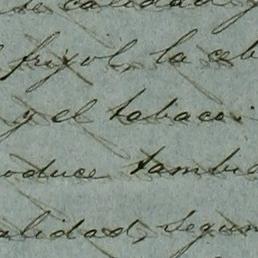 se calidad y
frijol, la ceb
y el tabaco.
oduce tambié
alidad, segun